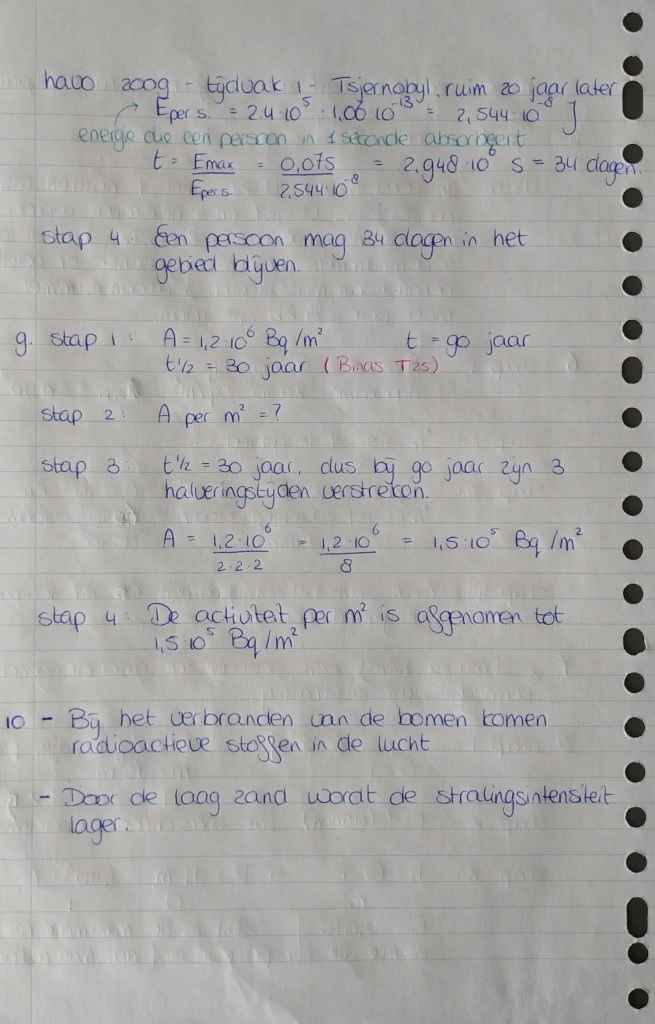 havo 2009 - tijdvak 1 - Tsjernobyl, ruim 20 jaar later
E per s. = 2.4·10⁵ · 1,06·10⁻¹³ = 2,544·10⁻⁸ J
energie die een persoon in 1 seconde absorbeert
t = Emax / E per s. = 0,075 / 2,544·10⁻⁸ = 2,948·10⁶ s = 34 dagen.
stap 4: Een persoon mag 34 dagen in het
gebied blijven.
9. stap 1: A = 1,2·10⁶ Bq/m² t = 90 jaar
t½ = 30 jaar (Binas T25)
stap 2: A per m² = ?
stap 3: t½ = 30 jaar, dus bij 90 jaar zijn 3
halveringstijden verstreken.
A = 1,2·10⁶ / 2·2·2 = 1,2·10⁶ / 8 = 1,5·10⁵ Bq/m²
stap 4: De activiteit per m² is afgenomen tot
1,5·10⁵ Bq/m²
10 - Bij het verbranden van de bomen komen
radioactieve stoffen in de lucht
- Door de laag zand wordt de stralingsintensiteit
lager.